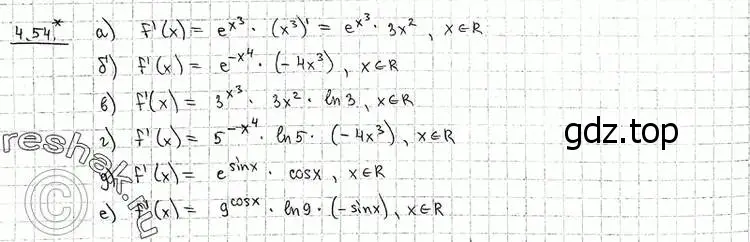 4.54* а) f'(x) = e^{x^3} · (x^3)' = e^{x^3} · 3x^2, x∈R
б) f'(x) = e^{-x^4} · (-4x^3), x∈R
в) f'(x) = 3^{x^3} · 3x^2 · ln3, x∈R
г) f'(x) = 5^{-x^4} · ln5 · (-4x^3), x∈R
gdz.top
д) f'(x) = e^{sinx} · cosx, x∈R
е) f'(x) = 9^{cosx} · ln9 · (-sinx), x∈R
reshak.ru
©